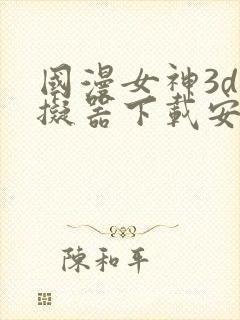 國漫女神3d
擬器下載安
陳和平